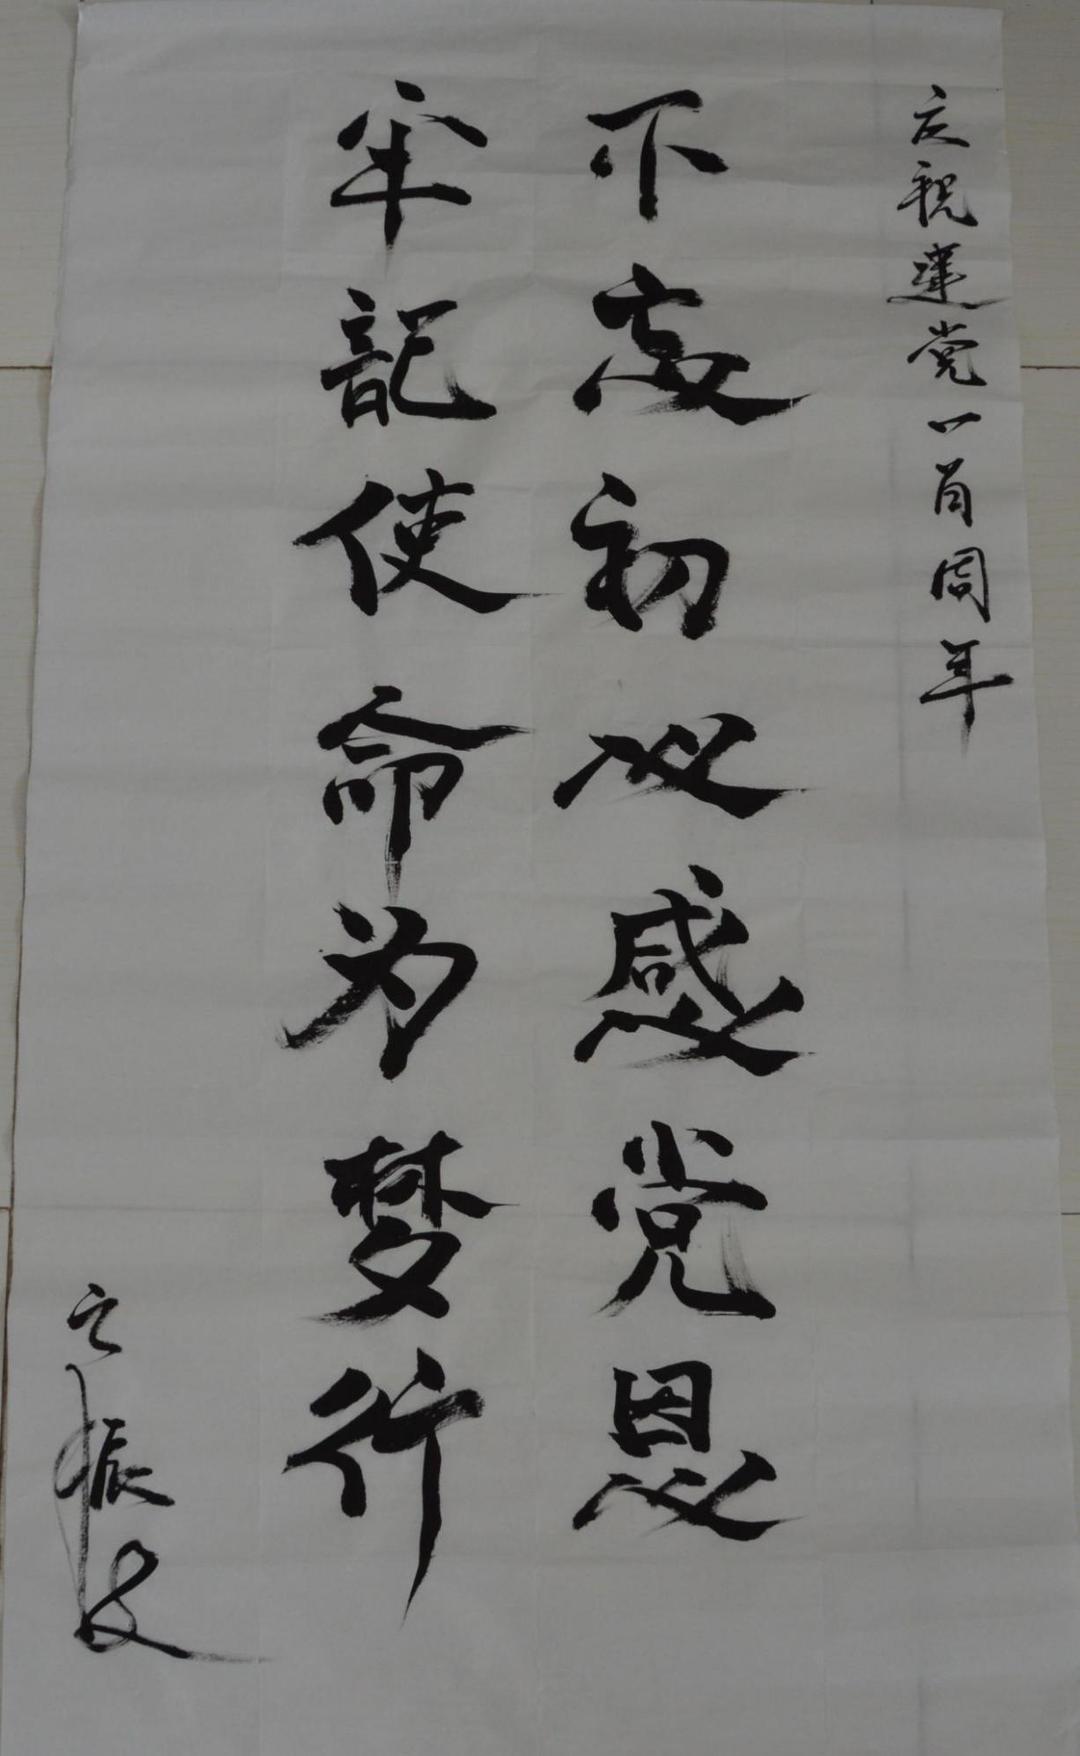 庆祝建党一百周年
不忘初心感党恩
牢记使命为梦行
振